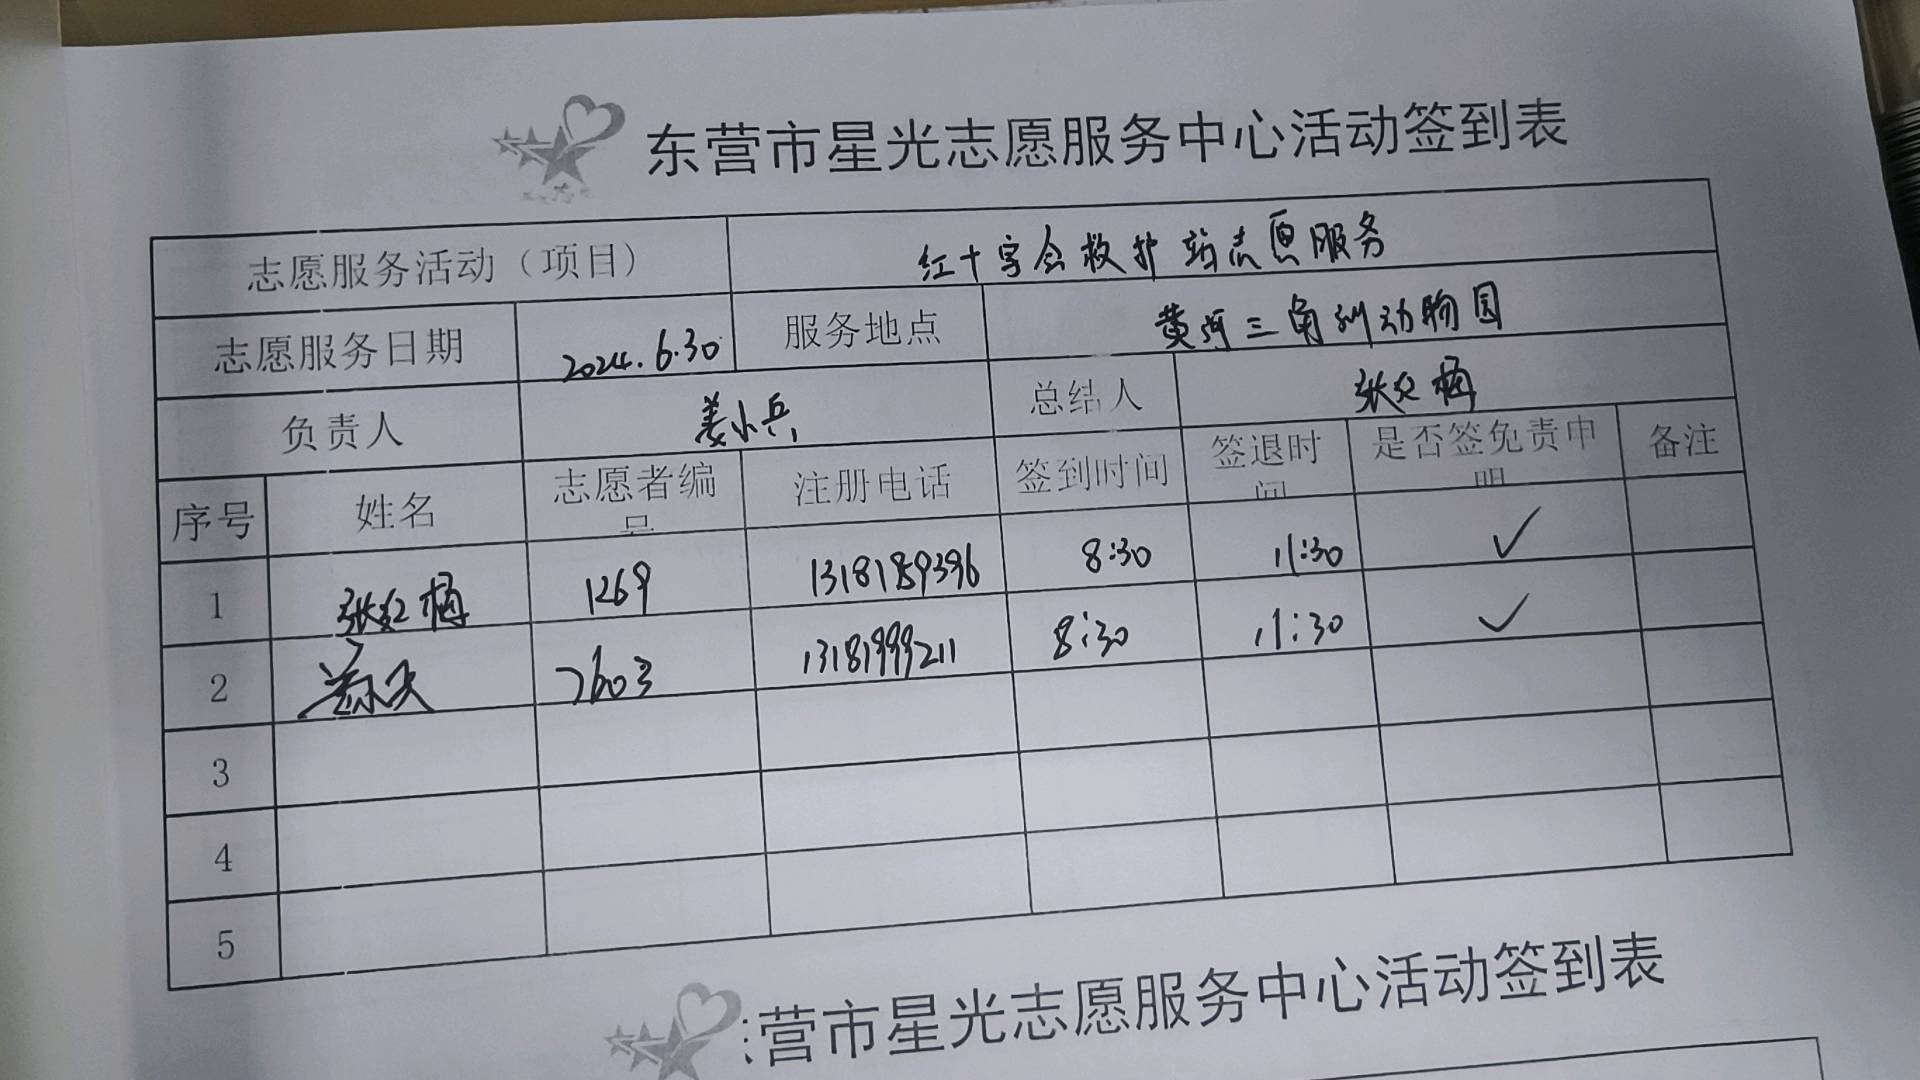 东营市星光志愿服务中心活动签到表
志愿服务活动（项目） 红十字会救护站志愿服务
志愿服务日期 2024.6.30 服务地点 黄河三角洲动物园
负责人 姜小兵 总结人 张红梅
序号 姓名 志愿者编号 注册电话 签到时间 签退时间 是否签免责申明 备注
1 张红梅 1269 13181859396 8:30 11:30 ✓
2 7603 13181999211 8:30 11:30 ✓
3
4
5
营市星光志愿服务中心活动签到表